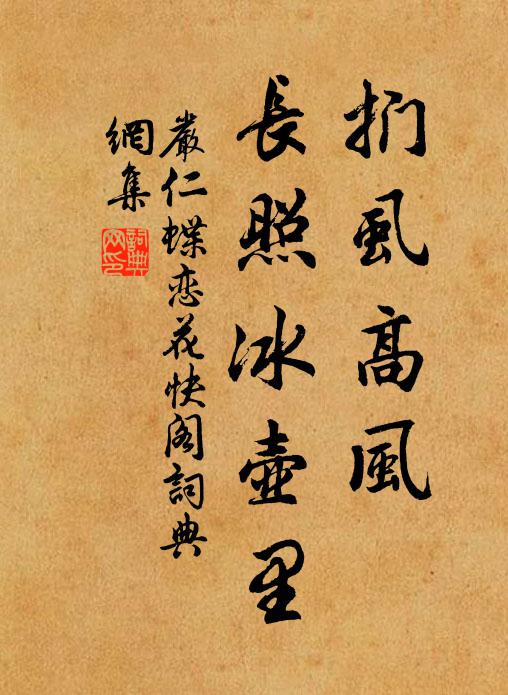 捫虱高風
長照冰壺里
嚴仁蝶恋花快阁詞典
網集
詞典
网印